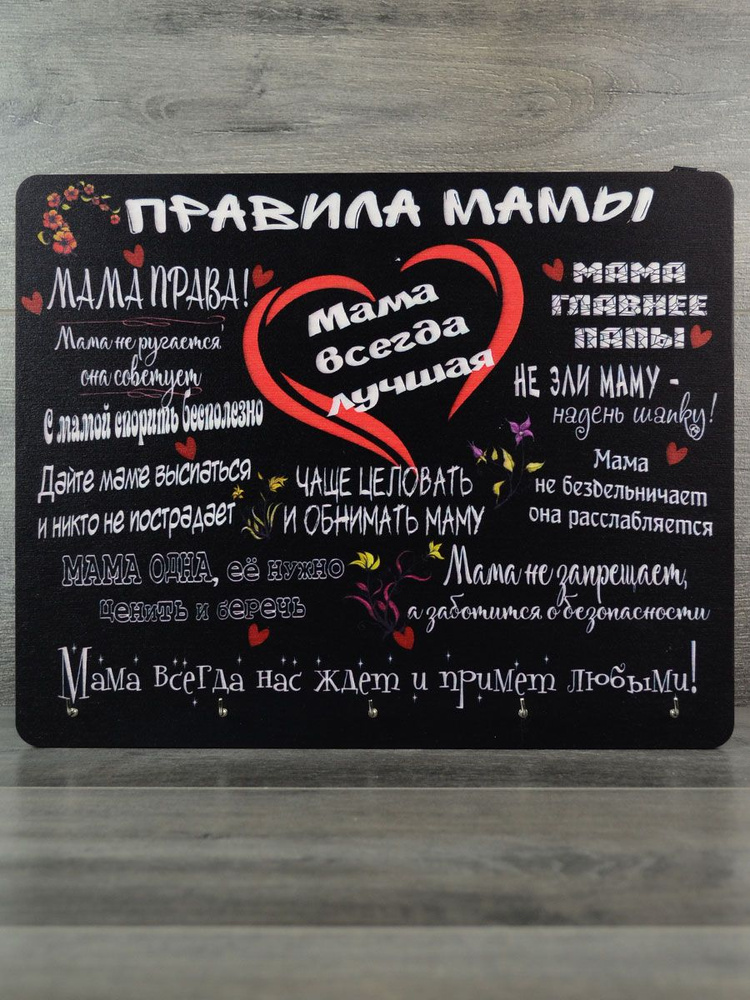 ПРАВИЛА МАМЫ
МАМА ПРАВА!
Мама не ругается
она советует
С мамой спорить бесполезно
Мама
всегда
лучшая
МАМА
ГЛАВНЕЕ
ПАПЫ
НЕ ЗЛИ МАМУ -
надень шапку!
Дайте маме выспаться
и никто не пострадает
ЧАЩЕ ЦЕЛОВАТЬ
И ОБНИМАТЬ МАМУ
Мама
не безбельничает
она расслабляется
МАМА ОДНА, её нужно
ценить и беречь
Мама не запрещает,
а заботится о безопасности
Мама всегда нас ждет и примет любыми!